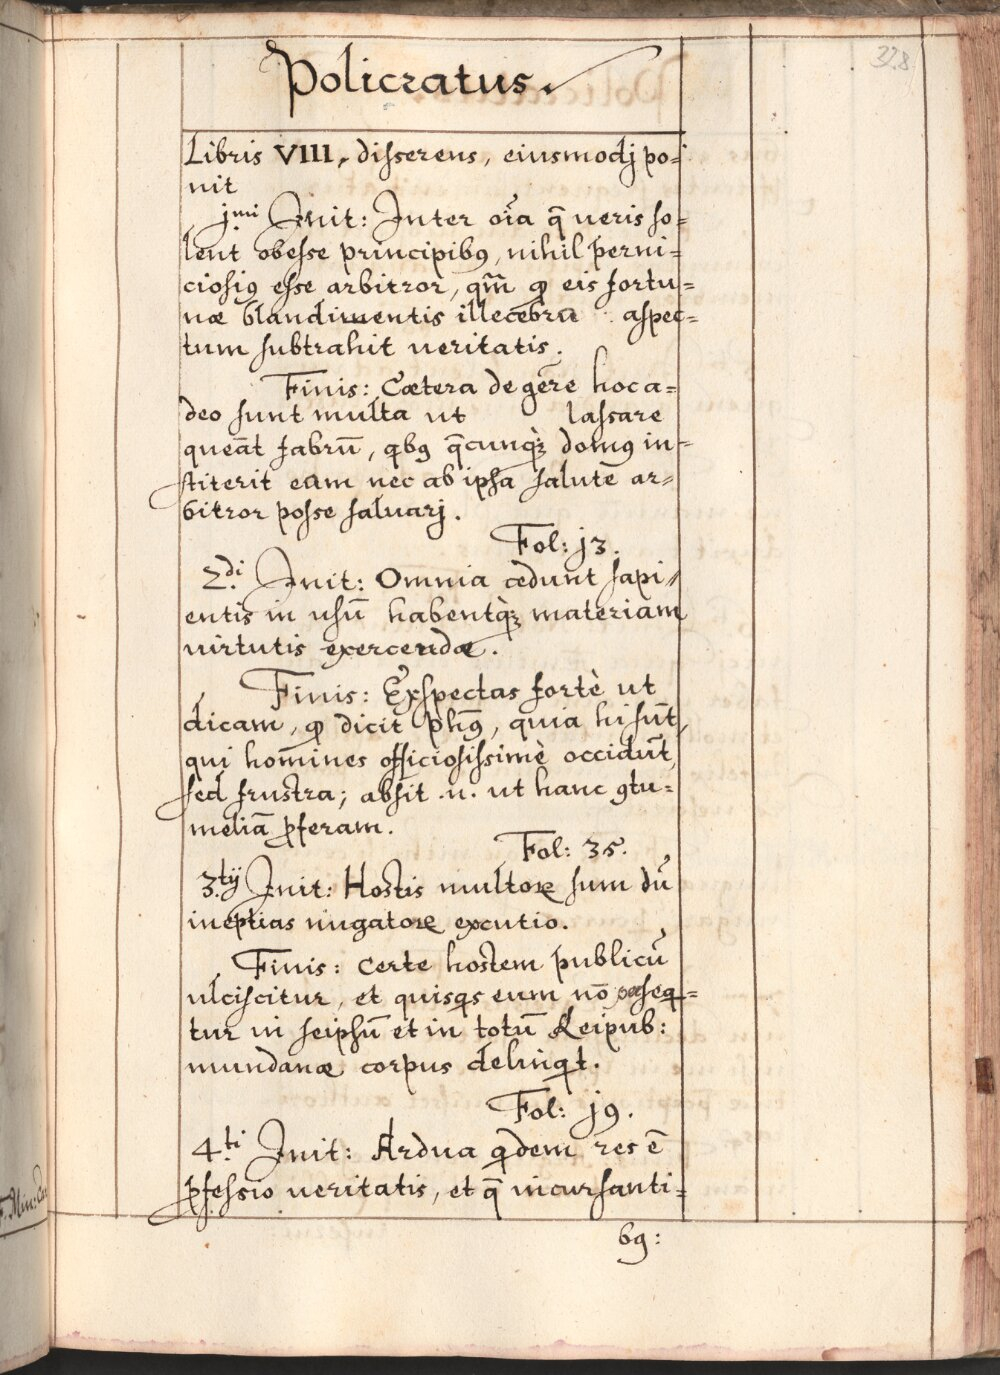 328
Policratus.
Libris VIII, disserens, eiusmodj po=
nit
jmi Init: Inter oĩa q̃ ueris so=
lent obesse principibꝯ, nihil perni=
ciosiꝯ esse arbitror, qm̃ qꝫ eis fortu=
næ blandimentis illecebra aspec=
tum subtrahit ueritatis.
Finis: Cœtera de gēre hoc a=
deo sunt multa ut lassare
queāt fabrū, qbꝯ q̄cunqꝫ domꝯ in=
stiterit eam nec ab ipsa salutē ar=
bitror posse saluarj.
Fol: j3.
2di. Init: Omnia cedunt sapi=
entis in usū habentqꝫ materiam
uirtutis exercendæ.
Finis: Exspectas fortè ut
dicam, qꝫ dicit ph̄ꝯ, quia hi sūt,
qui hom̄ines officiosissimè occidūt,
sed frustra; absit .n. ut hanc ꝯtu=
meliā ꝓferam.
Fol: 35.
3.tij Init: Hostis multoꝝ sum dū
ineptias nugatoꝝ excutio.
Finis: Certe hostem publicū
ulciscitur, et quisqs eum nō ꝑseq=
tur in seipsū et in totū Reipub:
mundanæ corpus delinqt.
Fol: j9.
4.ti Init: Ardua qdem res ē
ꝓfessio ueritatis, et q̄ incursanti=
bꝯ:
F. Min: Con